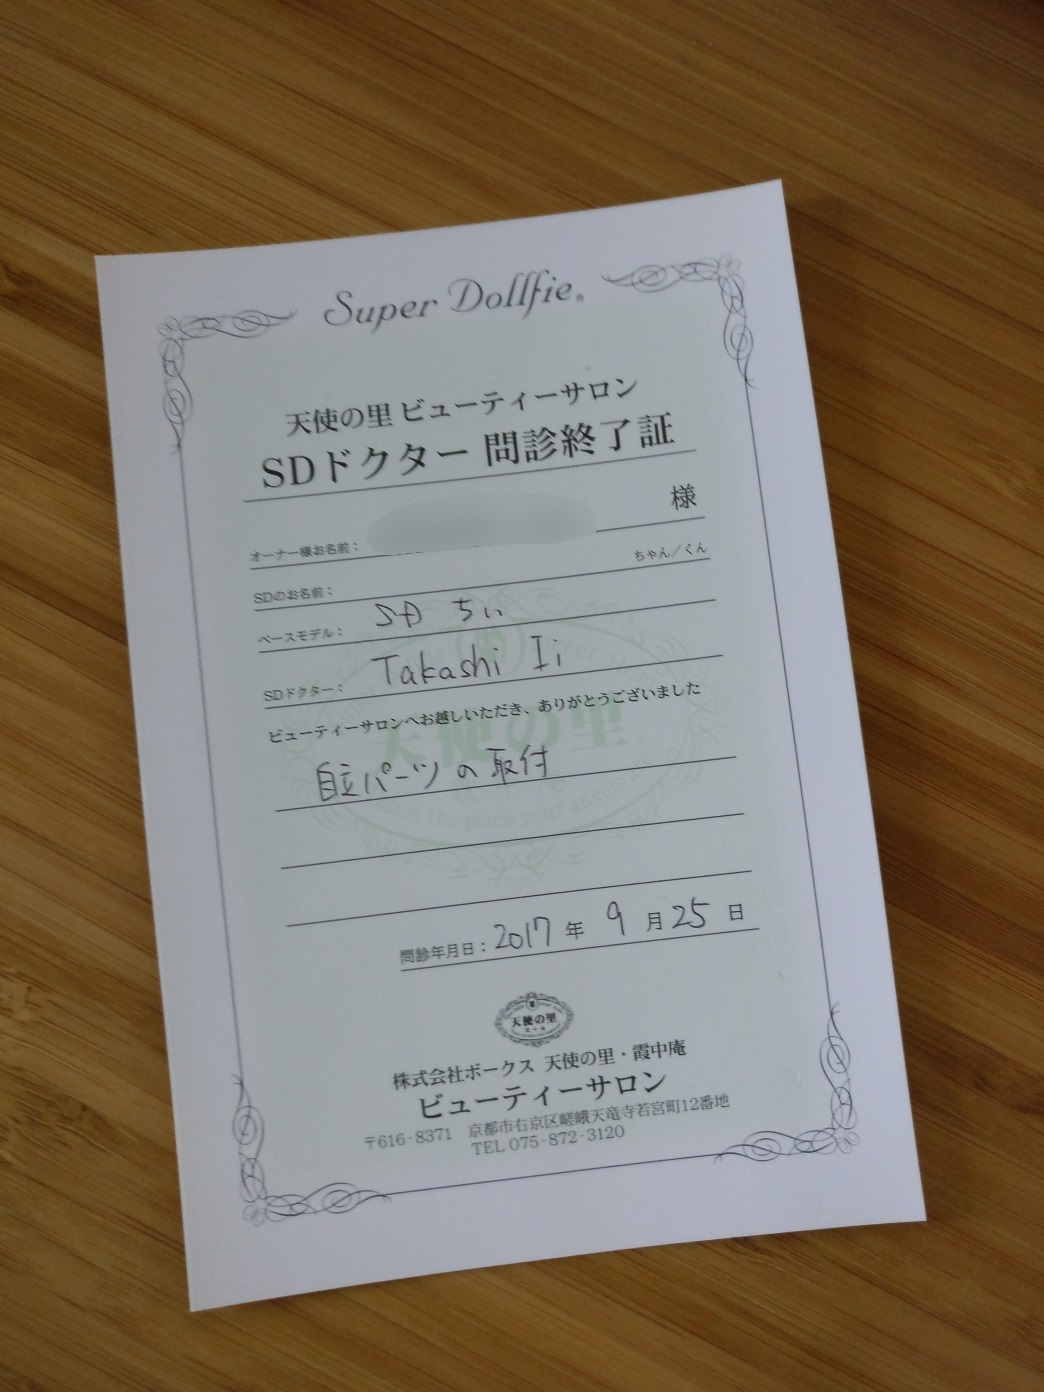 Super Dollfie®
天使の里 ビューティーサロン
SDドクター 問診終了証
オーナー様お名前： 様
SDのお名前： ちゃん／くん
ベースモデル： SD ちぃ
SDドクター： Takashi Ii
ビューティーサロンへお越しいただき、ありがとうございました
自立パーツの取付
問診年月日： 2017 年 9 月 25 日
天使の里
株式会社ボークス 天使の里・霞中庵
ビューティーサロン
〒616-8371 京都市右京区嵯峨天竜寺若宮町12番地
TEL 075-872-3120